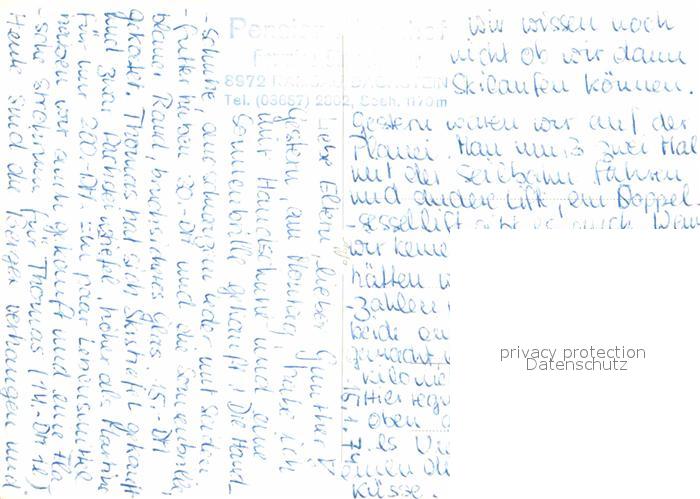 Pension
8972 RAMSAU DACHSTEIN
Tel. (03687) 2802, Seeh. 1170m
Liebe Eltern, lieber Günther!
Gestern, am Montag, habe ich
mir Handschuhe und eine
Sonnenbrille gekauft! Die Hand-
-schuhe, aus schwarzem Leder mit seiden
-futter haben 30.-DM und die Sonnenbrille,
blauer Rand, bruchsicheres Glas 15.-DM
gekostet. Thomas hat sich Skistiefel gekauft
und zwar höher als Martins
für nur 200.-DM. Ein paar Lebensmittel
haben wir auch gekauft und eine Fla-
-sche Strohrum für Thomas (14.-DM 1l)
Heute sind die Berge verhangen und
wir wissen noch
nicht ob wir dann
Skilaufen können.
Gestern waren wir auf der
Planei. Man muß zwei Mal
mit der Seilbahn fahren
und andere Lift, ein Doppel-
-sessellift gibt es auch. Wenn
wir keine
hätten
-zahlen
beide
gemacht,
Kilome
Hier reg
oben
15.1.74
es
einen
Küsse.
privacy protection
Datenschutz